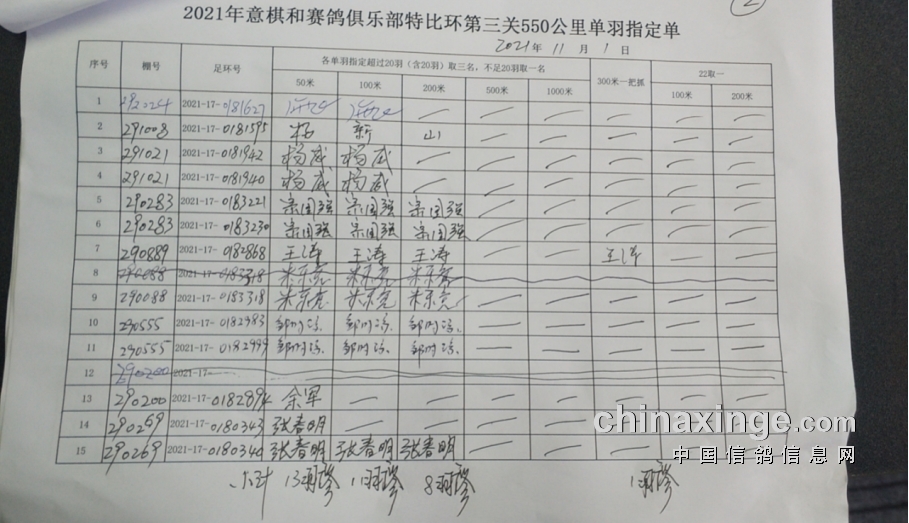 ②
2021年意棋和赛鸽俱乐部特比环第三关550公里单羽指定单
2021年 11 月 1 日
序号 棚号 足环号 各单羽指定超过20羽（含20羽）取三名，不足20羽取一名 300米一把抓 22取一
50米 100米 200米 500米 1000米 100米 200米
1 292024 2021-17-0181627 — — — — — —
2 291008 2021-17-0181595 杨 新 山 — — — — —
3 291021 2021-17-0181942 杨威 杨威 — — — — — —
4 291021 2021-17-0181940 杨威 杨威 — — — — — —
5 290283 2021-17-0183221 宗国强 宗国强 宗国强 — — — — —
6 290283 2021-17-0183230 宗国强 宗国强 宗国强 — — — — —
7 290889 2021-17-0182868 王涛 王涛 王涛 — — 王涛 — —
8 290088 2021-17-0183318 米东亮 米东亮 米东亮
9 290088 2021-17-0183318 米东亮 米东亮 米东亮 — — — — —
10 290555 2021-17-0182383 — — — — —
11 290555 2021-17-0182999 — — — — —
12 290200 2021-17-
13 290200 2021-17-0182894 余军 — — — — — — —
14 290269 2021-17-0180343 张春明 — — — — — —
15 290269 2021-17-0180340 张春明 张春明 张春明 — — — — —
小计 13羽 11羽 8羽 1羽
chinaxinge.com
中国信鸽信息网